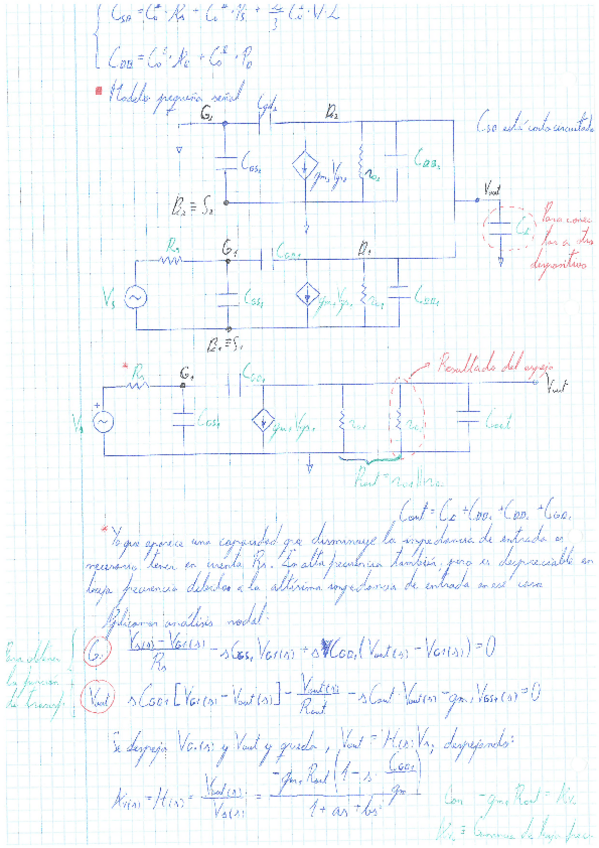 C_SB = C_0^± · A_S + C_0^± · P_S + 2/3 C_0^± · W · L
C_DB = C_0^± · A_D + C_0^± · P_D
Modelo pequeña señal
G₂ Cgd₂ D₂
C_SB está cortocircuitada
C_GS₂ gm₂Vgs₂ ro₂ C_DB₂
B₂ ≡ S₂
Vout
C_L
Para conec
tar a otro
dispositivo
Rs G₁ C_GD₁ D₁
Vs C_GS₁ gm₁Vgs₁ ro₁ C_DB₁
B₁ ≡ S₁
Resultado del espejo
* Rs G₁ C_GD₁ Vout
Vs C_GS₁ gm₁Vgs₁ ro₁ ro₂ Cout
Rout = ro₁ || ro₂
Cout = C_L + C_DB₁ + C_DB₂ + C_GD₂
* Ya que aparece una capacidad que disminuye la impedancia de entrada es
necesario tener en cuenta Rs. En alta frecuencia también, pero es despreciable en
baja frecuencia debido a la altísima impedancia de entrada en ese caso
Aplicamos análisis nodal:
Para obtener
la función
de transf.
G₁ (Vs(s) - VG₁(s))/Rs - sC_GS₁ VG₁(s) + s C_GD₁ (Vout(s) - VG₁(s)) = 0
Vout sC_GD₁ [VG₁(s) - Vout(s)] - Vout(s)/Rout - sCout · Vout(s) - gm₁ VGS₁(s) = 0
Se despeja VG₁(s) y Vout y queda, Vout = H(s) Vs, despejando:
Av(s) = H(s) = Vout(s)/Vs(s) = -gm₁ Rout (1 - s · C_GD₁/gm₁) / (1 + as + bs²)
con -gm₁ Rout = Av